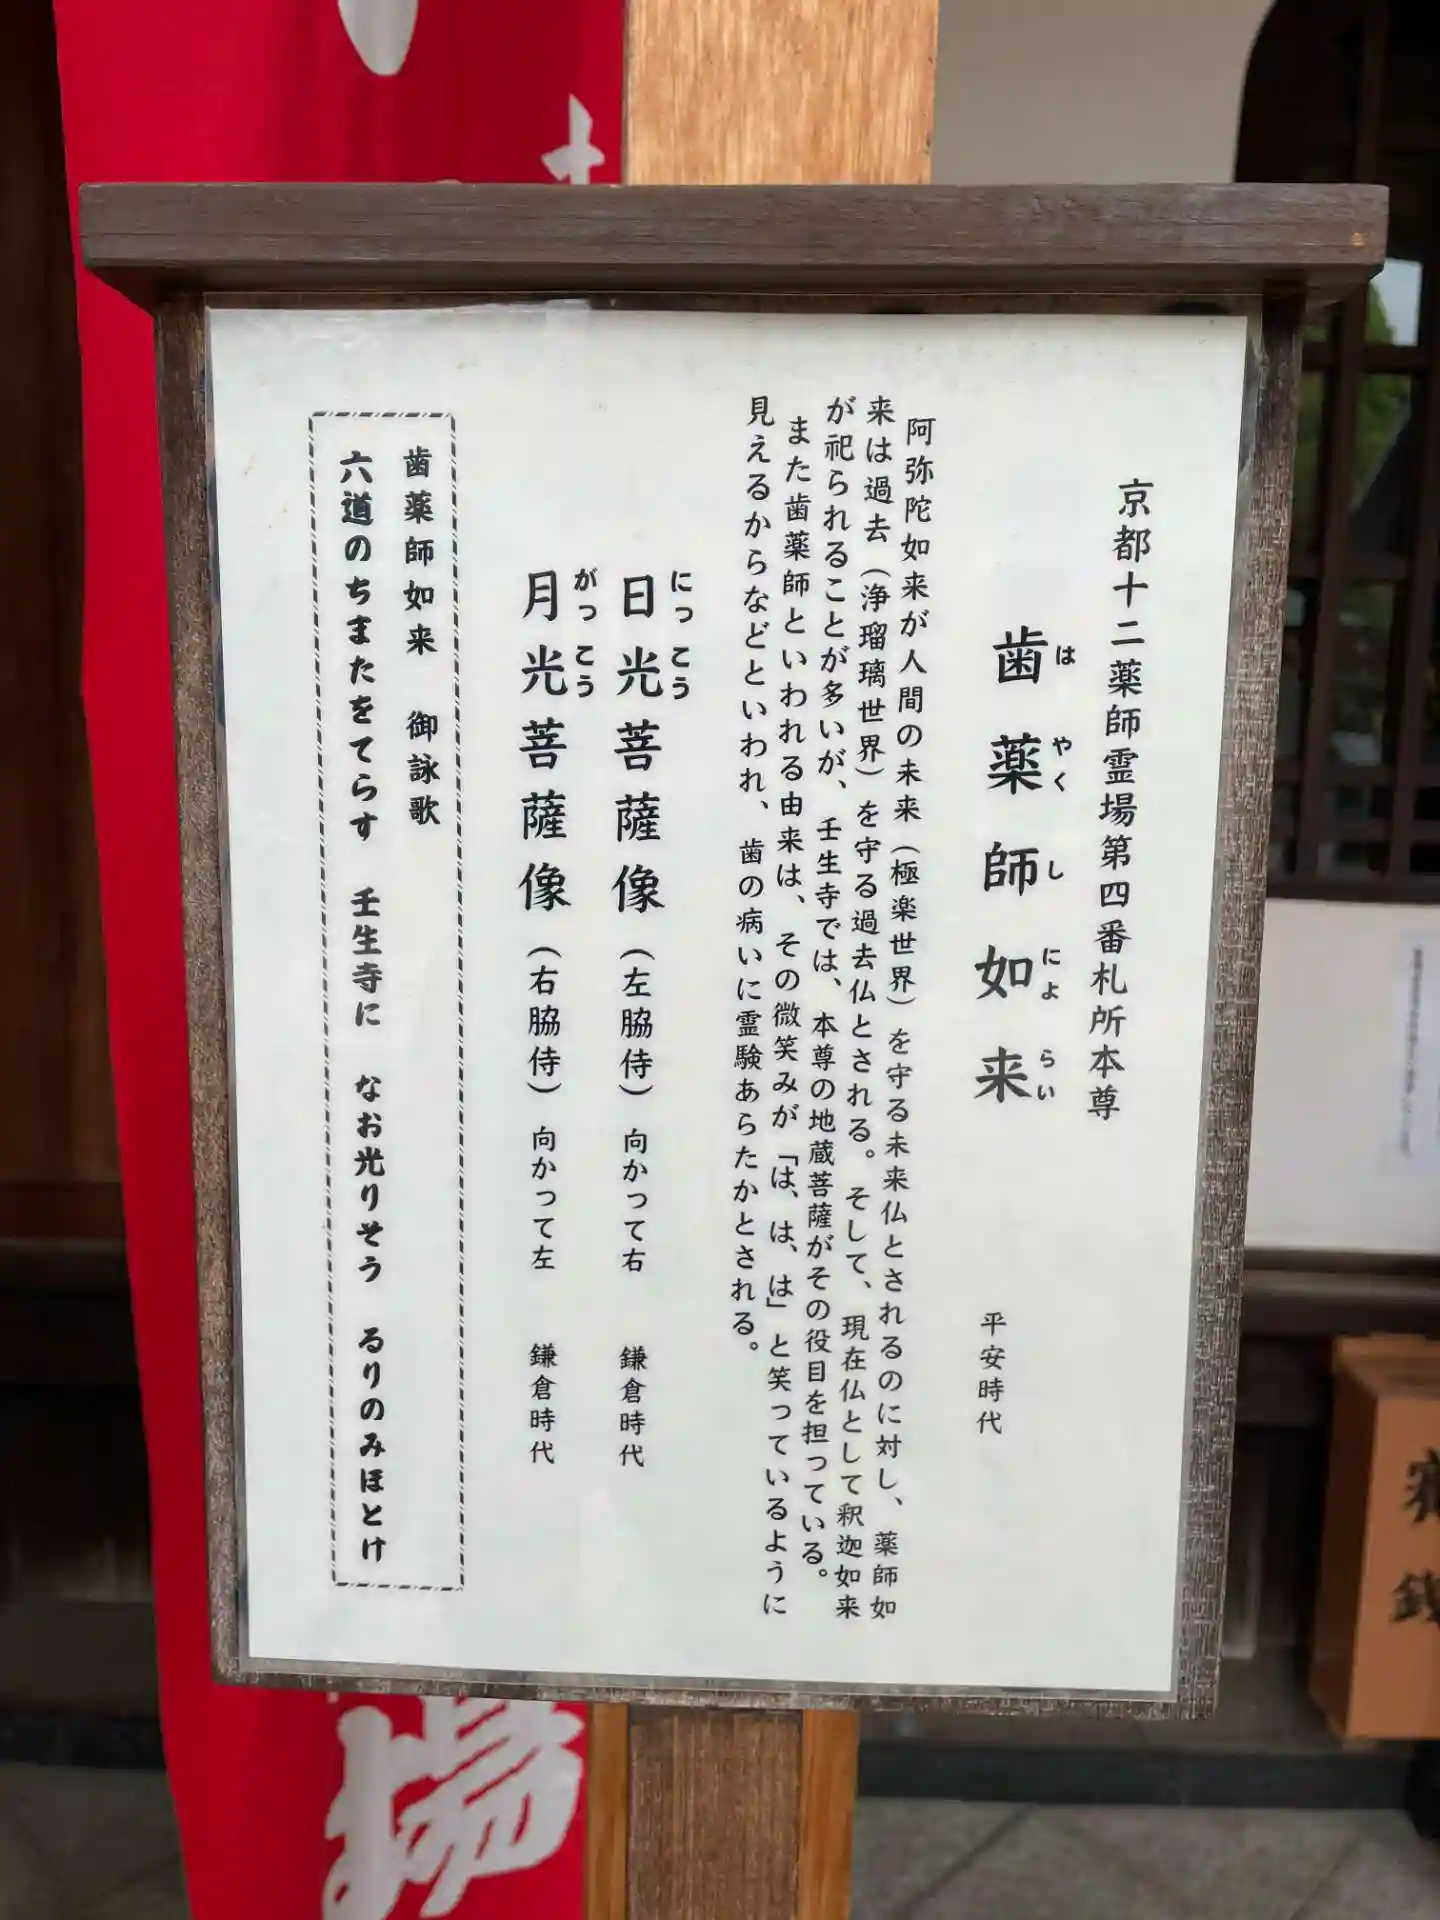 京都十二薬師霊場第四番札所本尊
歯薬師如来
は やく し によ らい
平安時代
阿弥陀如来が人間の未来（極楽世界）を守る未来仏とされるのに対し、薬師如
来は過去（浄瑠璃世界）を守る過去仏とされる。そして、現在仏として釈迦如来
が祀られることが多いが、壬生寺では、本尊の地蔵菩薩がその役目を担っている。
また歯薬師といわれる由来は、その微笑みが「は、は、は」と笑っているように
見えるからなどといわれ、歯の病いに霊験あらたかとされる。
にっこう
日光菩薩像（左脇侍）向かって右 鎌倉時代
がっこう
月光菩薩像（右脇侍）向かって左 鎌倉時代
歯薬師如来 御詠歌
六道のちまたをてらす 壬生寺に なお光りそう るりのみほとけ
場